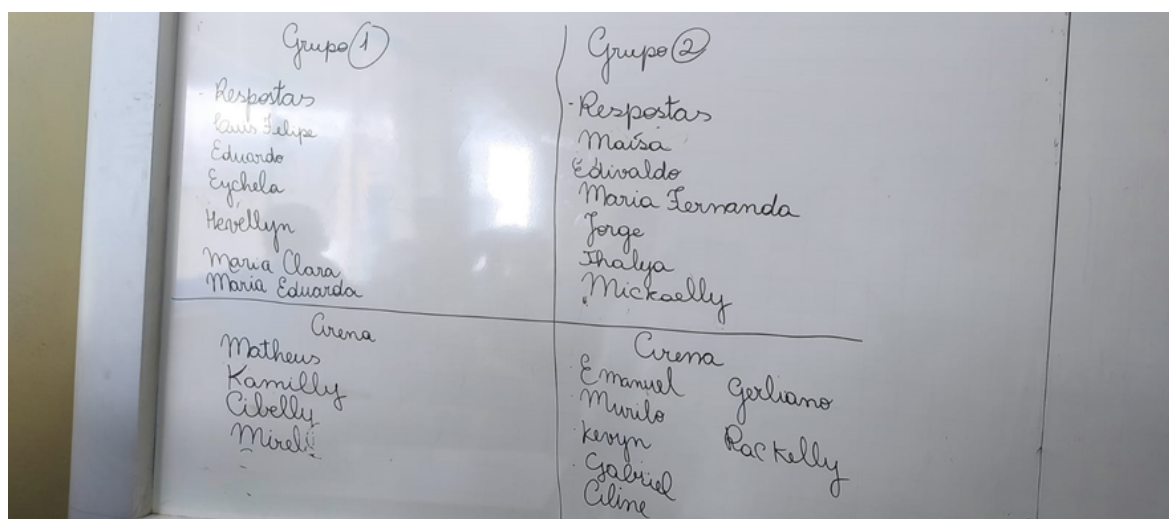 Grupo 1
Respostas
Luis Felipe
Eduardo
Eychela
Hevéllyn
Maria Clara
Maria Eduarda
Arena
Matheus
Kamilly
Cibelly
Mireli
Grupo 2
Respostas
Maísa
Edivaldo
Maria Fernanda
Jorge
Thalya
Mickaelly
Arena
Emanuel Gerliano
Murilo
Kevyn Rackelly
Gabriel
Aline